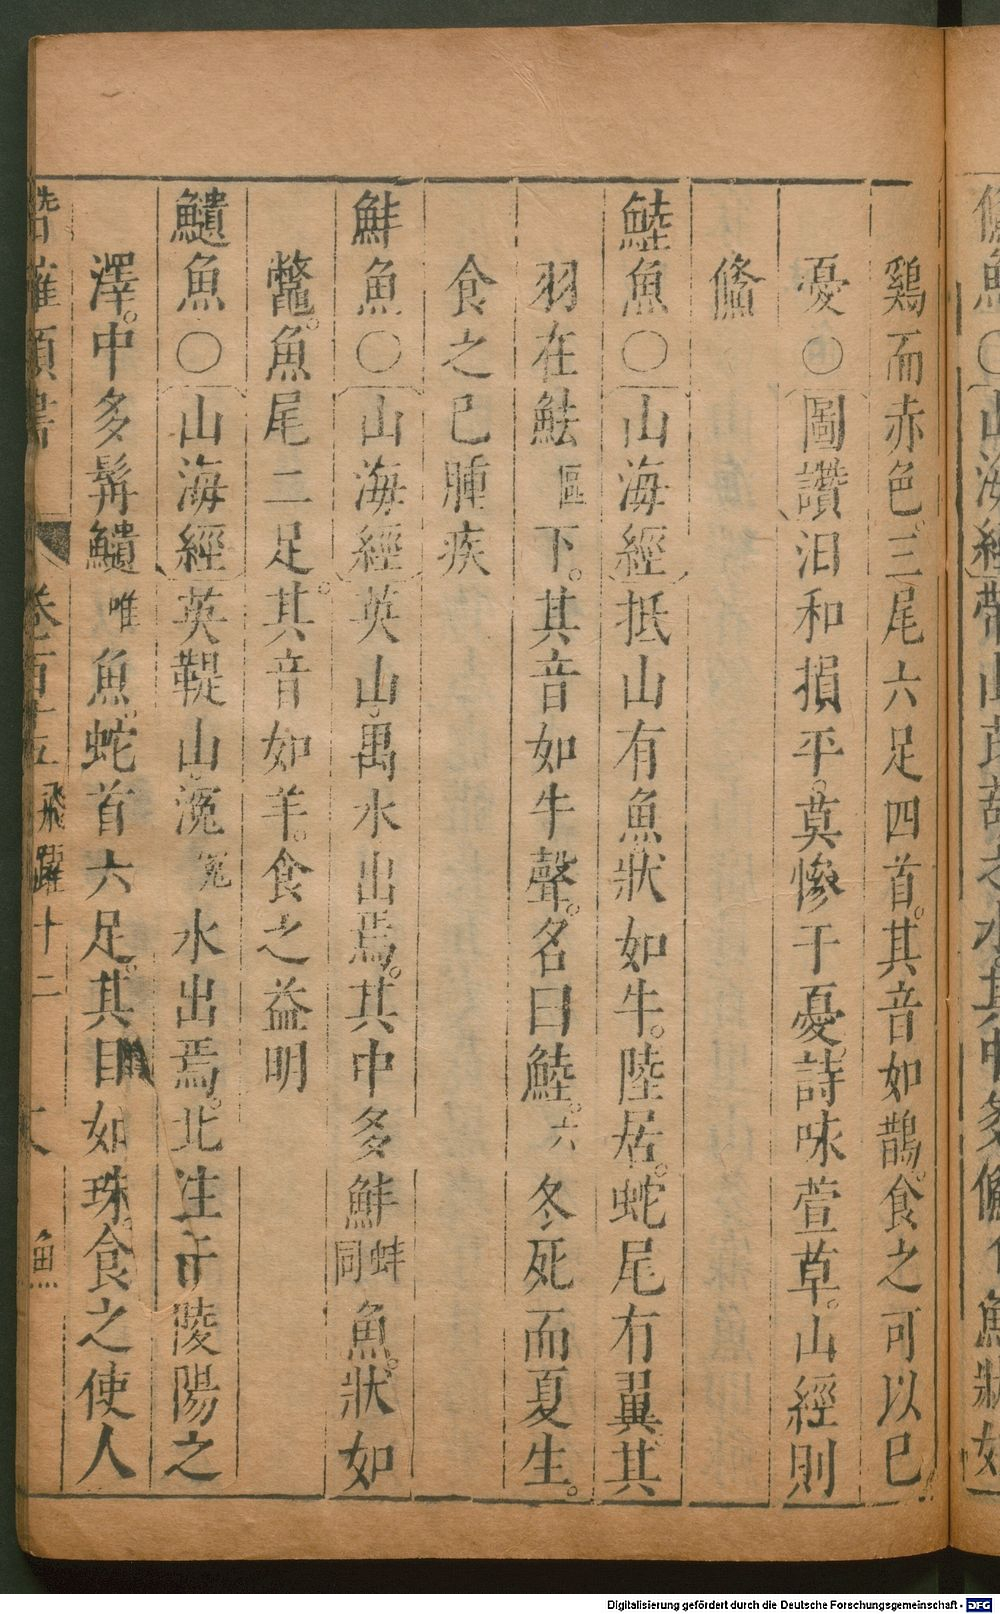 雞而赤色。三尾六足四首。其音如鵲。食之可以已
憂○圖讚汨和損平。莫慘于憂。詩味萱草。山經則
鯈
鯥魚○山海經抵山有魚。狀如牛。陸居。蛇尾有翼。其
羽在魼區下。其音如牛聲。名曰鯥。六冬死而夏生。
食之已腫疾
鮮魚○山海經英山。禺水出焉。其中多鮮蚌同魚。狀如
鼈。魚尾二足。其音如羊。食之益明
鱝魚○山海經英鞮山。涴冤水出焉。北注于陵陽之
澤。中多髯鱝唯魚。蛇首六足。其目如珠。食之使人
潛確類書
卷一百十五 飛躍十二
魚
Digitalisierung gefördert durch die Deutsche Forschungsgemeinschaft - DFG